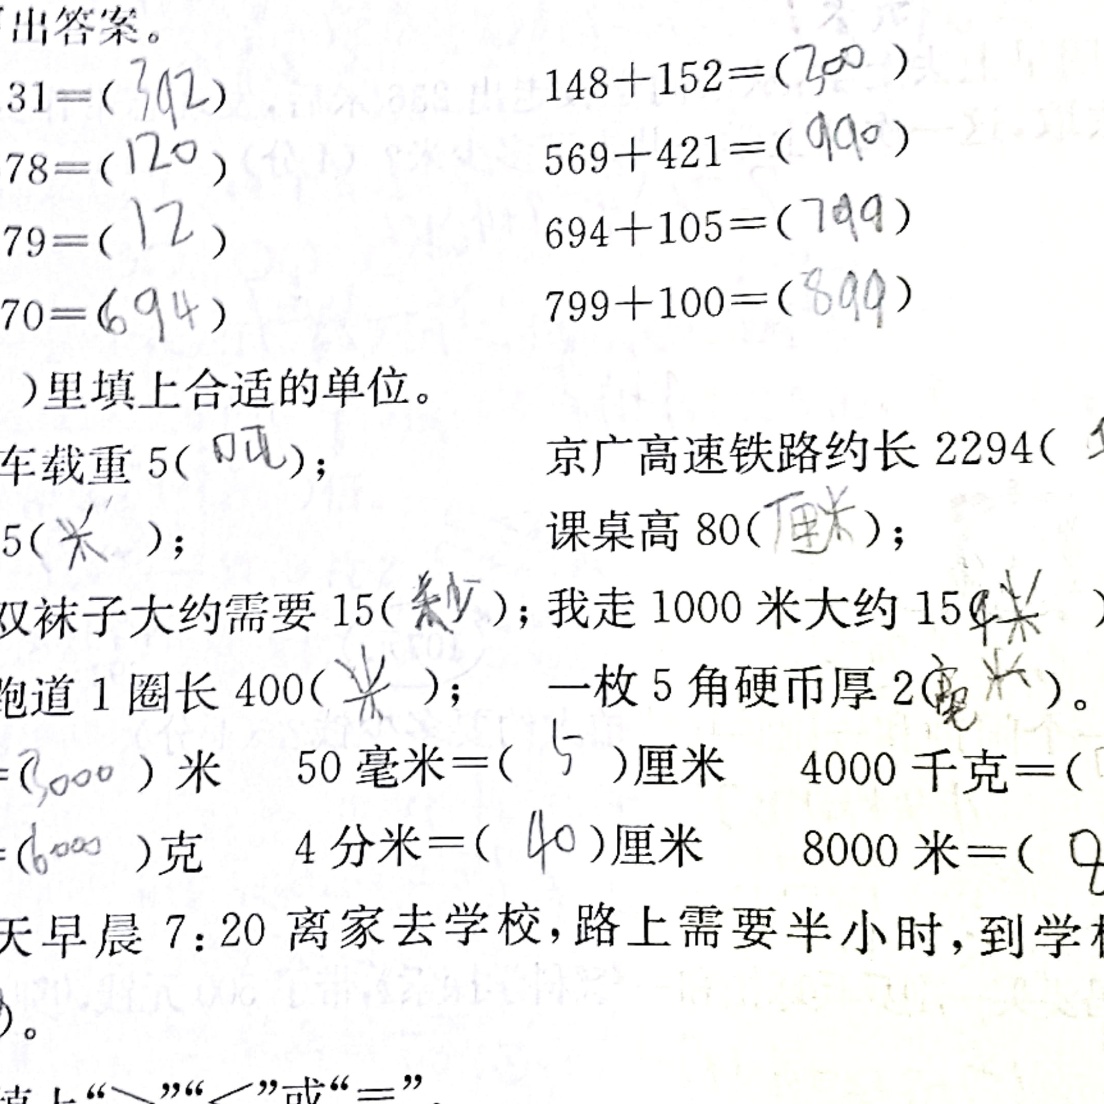 出答案。
31=(392) 148+152=(300)
78=(120) 569+421=(990)
79=(12) 694+105=(799)
70=(694) 799+100=(899)
)里填上合适的单位。
车载重 5(吨); 京广高速铁路约长 2294(
5(米); 课桌高 80(厘米);
双袜子大约需要 15(秒); 我走 1000 米大约 15( )
跑道 1 圈长 400(米); 一枚 5 角硬币厚 2(毫米)。
=(3000)米 50 毫米=(5)厘米 4000 千克=(
=(6000)克 4 分米=(40)厘米 8000 米=(
天早晨 7:20 离家去学校,路上需要半小时,到学校
)。
填上“>”“<”或“=”.